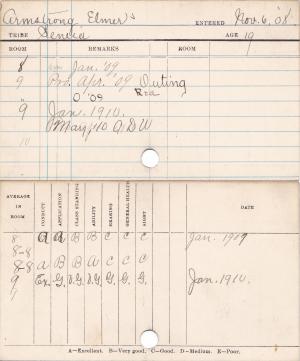 Armstrong, Elmer S ENTERED Nov. 6, '08
TRIBE Seneca AGE 19
ROOM REMARKS ROOM
8 Jan. '09
9 Pro. Apr. '09 Outing
O '09
"9 Jan. 1910.
May 10 A D W
10
AVERAGE IN ROOM CONDUCT APPLICATION CLASS STANDING ABILITY HEARING GENERAL HEALTH SIGHT DATE
8 A A B B C C C Jan. 1909
8-8
8-8 A B B A C C C
9 Ex. G. V.G. V.G. G. G. G. Jan. 1910.
A—Excellent. B—Very good. C—Good. D—Medium. E—Poor.